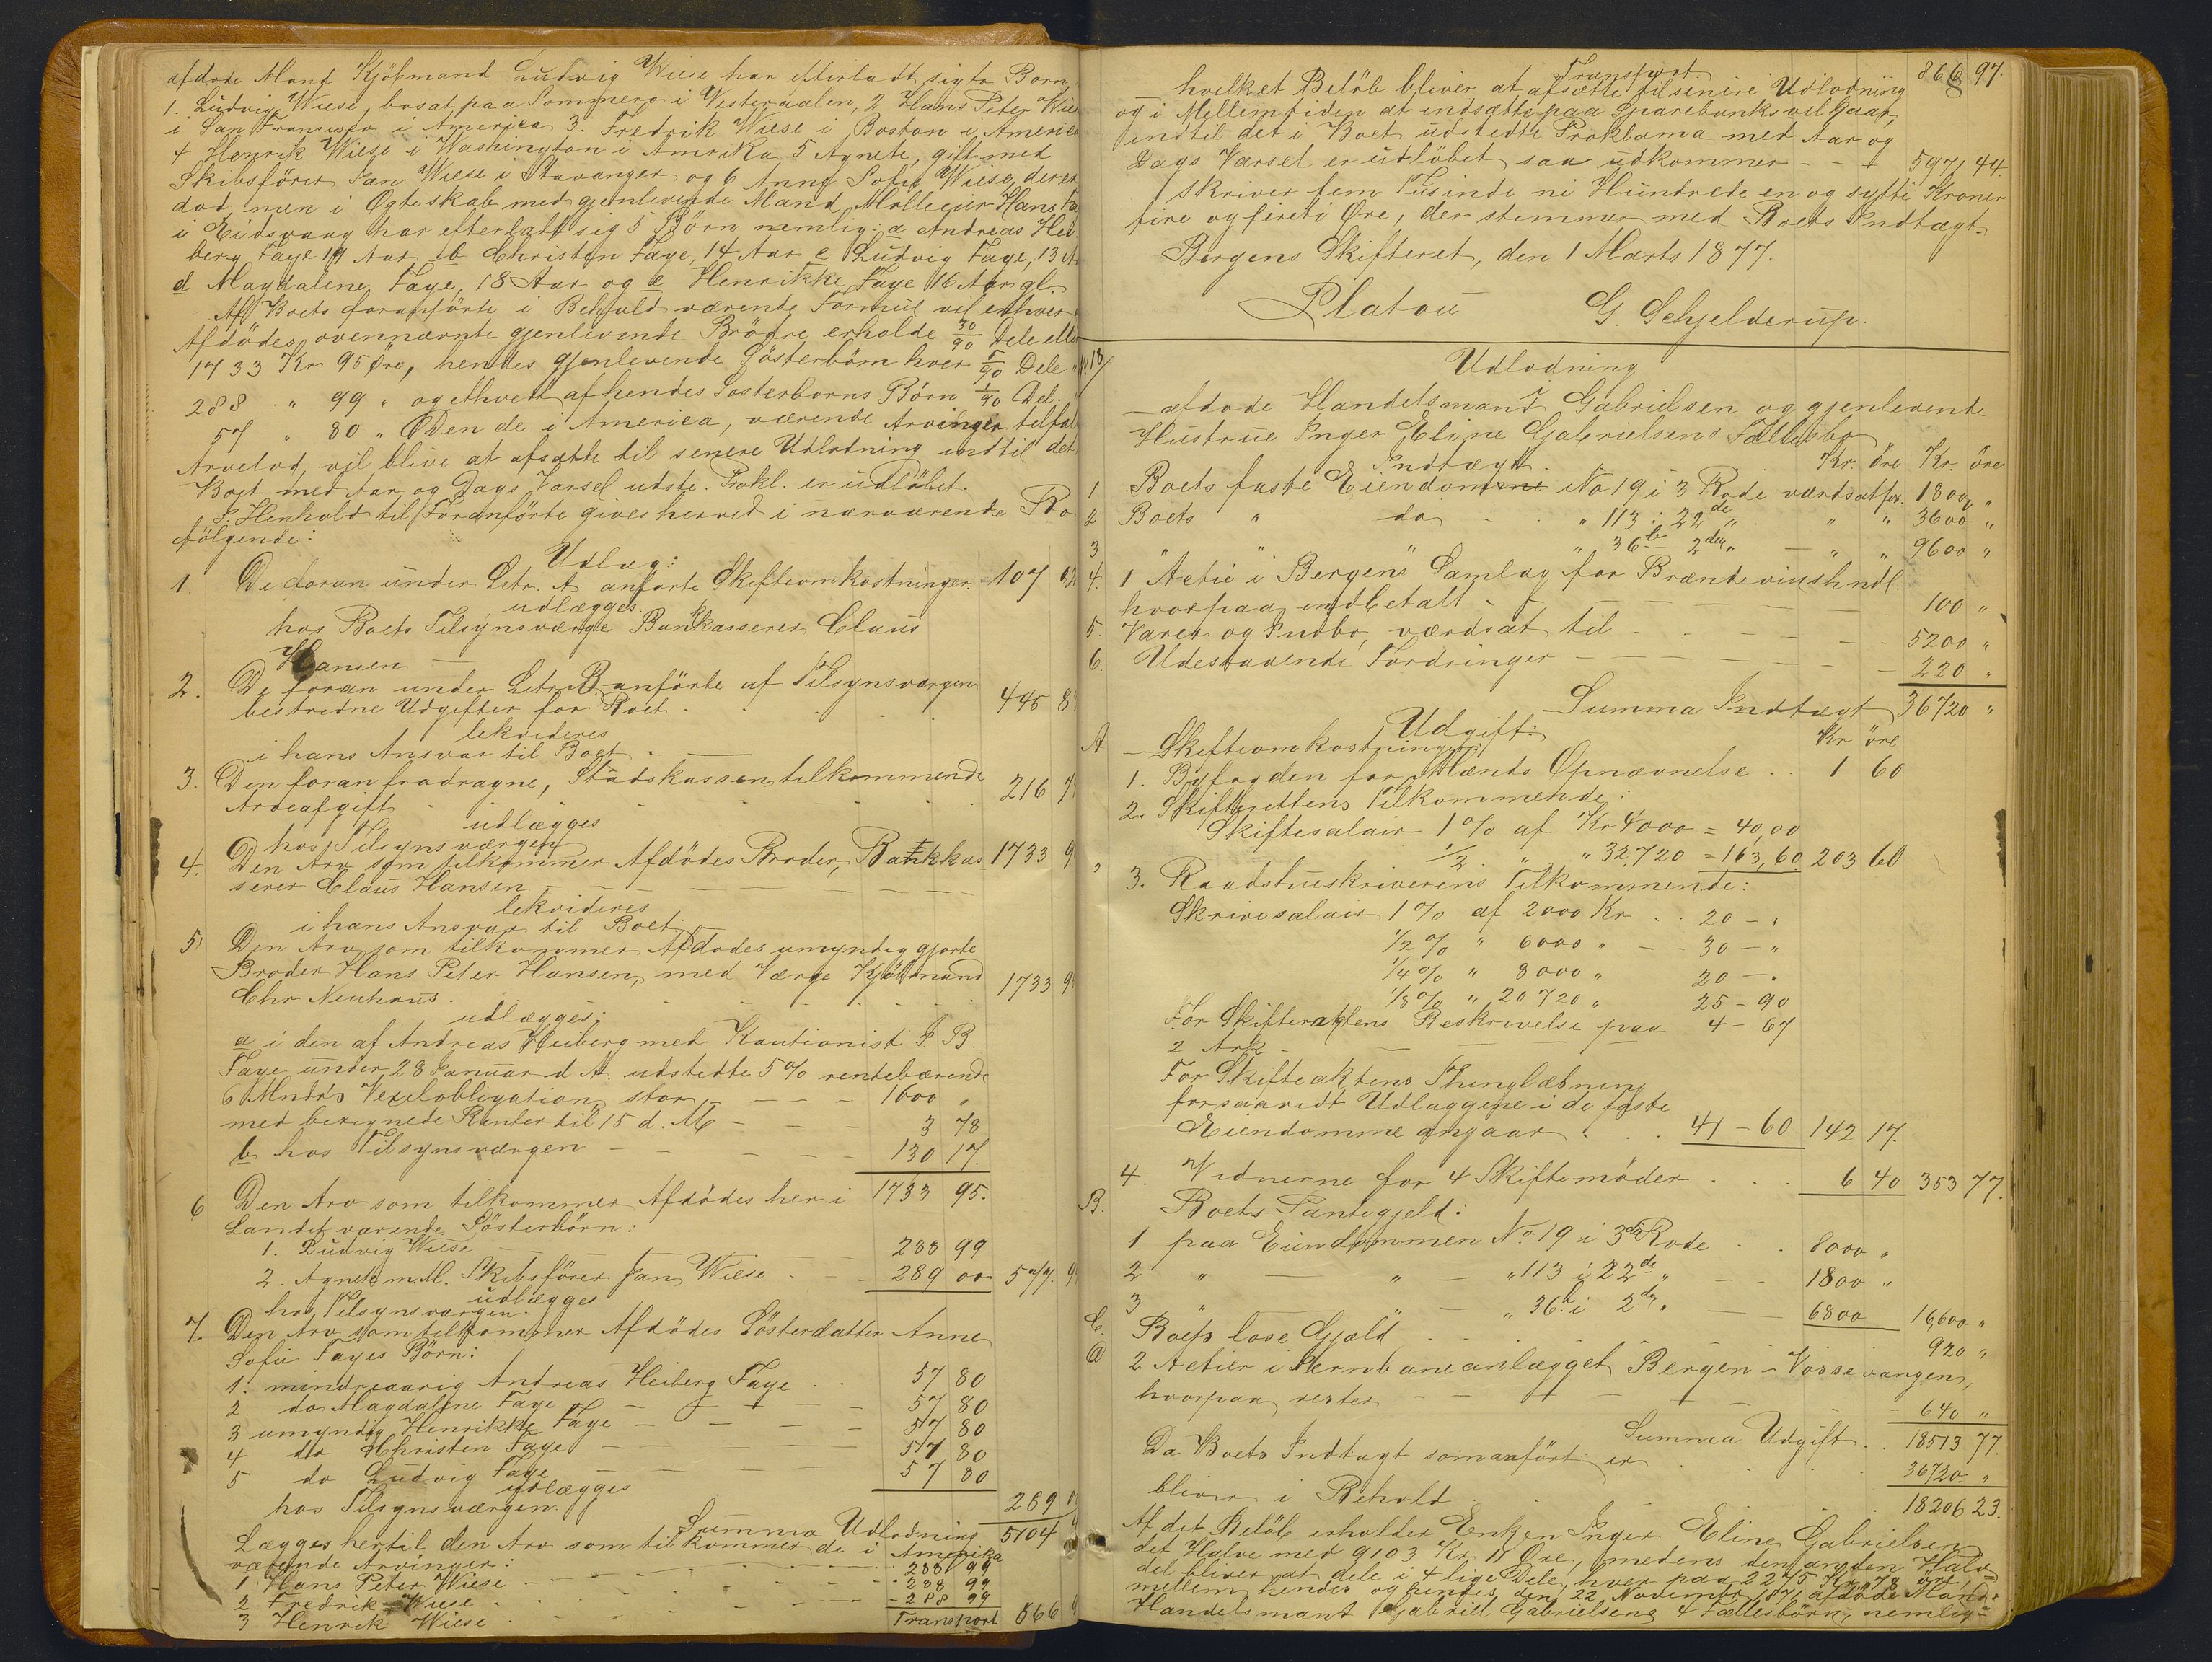 afdøde Mand Kjöbmand Ludvig Wiese har efterladt sigto Born
1. Ludvig Wiese, bosat paa Sommerø i Vesteraalen, 2 Hans Peter Wiese
i San Fransisko i America 3. Fredrik Wiese i Boston i America
4 Henrik Wiese i Washington i Amrika, 5 Agnete, gift med
Skibsförer Jan Wiese i Stavanger og 6 Anne Sofie Wiese, der er
död, men i Ægteskab med gjenlevende Mand Hans
i Eidsvaag har efterladt sig 5 Börn nemlig: a Andreas Hei-
berg Faye 19 Aar b Christen Faye, 14 Aar c Ludvig Faye, 13
d Magdalene Faye, 18 Aar og e Henrikke Faye 16 Aar gl.
Af Boets foranförte i Behold værende Formue vil enhver
Afdödes ovennævnte gjenlevende Brödre erholde 30/90 Dele eller
1733 Kr 95 Öre, hendes gjenlevende Sösterbörn hver 5/90 Dele
288 " 99 " og ethvert af hendes Sosterborns Börn 1/90 Del.
57 " 80 " Den de i America, værende Arvinger
Arvelod, vil blive at afsætte til senere Udlodning indtil det
Boet med Aar og Dags Varsel udste. Prokl. er udlöbet.
I Henhold til Foranförte gives herved i nærværende Bo
fölgende:
Udlæg:
1. De foran under Litr. A anförte Skifteomkostninger 107
udlægges
hos Boets Tilsynsværge Bankkasserer Claus
Hansen
2. De foran under Litr. B anförte af Tilsynsværgen
bestridne Udgifter for Boet 445 8
lekvideres
i hans Ansvar til Boet.
3. Den foran fradragne, Stadskassen tilkommende
Arveafgift 216
udlægges
hos Tilsynsværgen
4. Den Arv som tilkommer Afdödes Broder, Bankkas- 1733 9
serer Claus Hansen
lekvideres
i hans Ansvar til Boet.
5) Den Arv, som tilkommer Afdödes umyndiggjorte
Broder Hans Peter Hansen, med Værge Kjöbmand
Chr Neuhaus 1733 9
udlægges:
a i den af Andreas Heiberg med Kautionist J. B.
Faye under 28 Januar d. A. udstedte 5% rentebærende
6 Mndrs Vexelobligation, stor 1600 "
med beregnede Renter til 15 d. M 3 78
b hos Tilsynsværgen 130 17.
6 Den Arv som tilkommer Afdödes her i 1733 95.
Landet værende Sösterbörn:
1. Ludvig Wiese 288 99
2. Agnete m. M. Skibsförer Jan Wiese 289 00 577. 9
udlægges
hos Tilsynsværgen
7. Den Arv som tilkommer Afdödes Sösterdatter Anne
Sofie Fayes Börn:
1. mindreaarig Andreas Heiberg Faye 57 80
2. do Magdalene Faye 57 80
3 umyndig Henrikke Faye 57 80
4 do Christen Faye 57 80
5 do Ludvig Faye 57 80
udlægges
hos Tilsynsværgen. 289
Summa Udlodning 5104
Lægges hertil den Arv som tilkommer de i Amerika
værende Arvinger:
1 Hans Peter Wiese 288 99
2. Fredrik Wiese 288 99
3 Henrik Wiese 288 99
Transport 866
Transport. 866 97.
hvilket Belöb bliver at afsætte til senere Udlodning
og i Mellemtiden at indsættepaa Sparebanksvilkaar,
indtil det i Boet udstedte Proklama med Aar og
Dags Varsel er udlöbet, saa udkommer 5971 44.
skriver fem Tusinde ni Hundrede en og sytti Kroner
fire og fireti Öre, der stemmer med Boets Indtægt.
Bergens Skifteret, den 1 Marts 1877.
Platou G. Schjelderup.
No 18/
Udlodning
i
afdøde Handelsmand Gabrielsen og gjenlevende
Hustrue Inger Eline Gabrielsens Fællesbo
Indtægt. Kr. öre Kr. öre
1 Boets faste Eiendom No 19 i 3 Rode værdsat for 1800 "
2 Boets " do " 113 i 22de " " " 3600 "
3 " " " 36b - 2den " " " 9600 "
4. 1 Actie i Bergens Samlag for Brændevinshndl.
hvorpaa indbetalt 100 "
5. Varer og Indbo, værdsat til 5200 "
6. Udestaaende Fordringer 220 "
Summa Indtægt 36720 "
Udgift:
A Skifteomkostninger: Kr öre
1. Byfogden for Mænds Opnævnelse 1 60
2. Skifterettens Tilkommende:
Skiftesalair 1% af Kr 4000 = 40,00
1/2 " " 32,720 = 163,60. 203 60
3. Raadstueskriverens Tilkommende:
Skrivesalair 1% af 2000 Kr 20 - "
1/2 % " 6000 " 30 - "
1/4 % " 8000 " 20 - "
1/8 % " 20720 " 25 - 90
For Skifteraktens Beskrivelse paa 4 - 67
2 Ark
For Skifteaktens Thinglæsning
forsaavidt Udlæggene i de faste
Eiendomme angaar 41 - 60 142 17.
4. Vidnerne for 4 Skiftemöder 6 40 353 77.
B. Boets Pantegjeld:
1 paa Eiendommen No 19 i 3die Rode 8000 "
2 " " " 113 i 22de " 1800 "
3 " " " 36b i 2den " 6800 16,600 "
C. Boets löse Gjæld 920 "
D 2 Actier i Jernbaneanlægget Bergen - Vossevangen,
hvorpaa rester 640 "
Summa Udgift 18513 77.
Da Boets Indtægt som anfört er 36720 "
bliver i Behold 18206 23.
Af det Belöb erholder Enken Inger Eline Gabrielsen
det Halve med 9103 Kr 11 Öre, medens den anden Halv-
del bliver at dele i 4 lige Dele, hver paa 2275 Kr 78 öre,
mellem hendes og hendes, den 22 Novembr 1871 afdöde Mand
Handelsmand Gabriel Gabrielsens 4 Fællesbörn, nemlig: